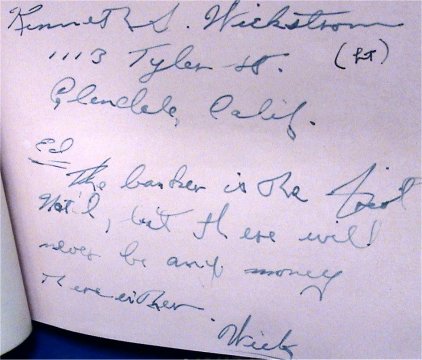 Kenneth S. Wickstrom
1113 Tyler St. (LT)
Glendale, Calif.
Ed
The banker is the First
Nat'l, but there will
never be any money
there either.
Wick